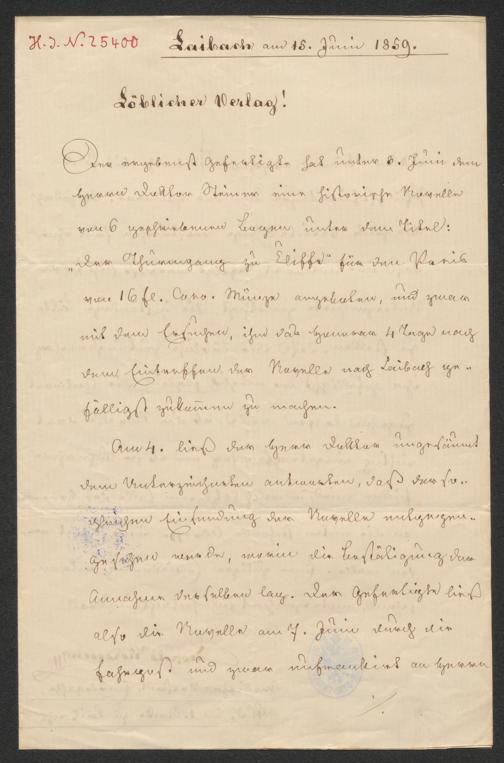 H. I. N. 25400
Laibach am 15. Juni 1859.
Löblicher Verlag!
Der ergebenst Gefertigte hat unter 3. Juni dem
Herrn Doktor Steiner eine historische Novelle
von 6 geschriebenen Bogen unter dem Titel:
„Der Thurmgang zu Cliffe“ für den Preis
von 16 fl. Conv. Münze angeboten, und zwar
mit dem Ersuchen, ihm das Honorar 4 Tage nach
dem Eintreffen der Novelle nach Laibach ge-
fälligst zukommen zu machen.
Am 4. ließ der Herr Doktor ungesäumt
dem Unterzeichneten antworten, daß der so-
Einsendung der Novelle entgegen-
gesehen werde, worin die Bestätigung der
Annahme derselben lag. Der Gefertigte ließ
also die Novelle am 7. Juni durch die
Fahrpost und zwar unfrankirt an Herrn